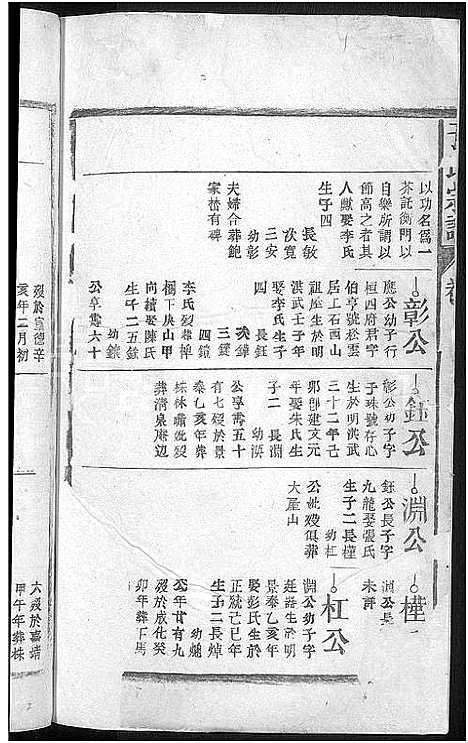 以功名爲一
芥託衡門以
自樂所謂以
節高之者其
人歟娶李氏
生子四
長敏
次寬
三安
幼彰
夫婦合葬鮑
家樁有碑
彰公
應公幼子行
桓四府君字
伯亨號松雲
居上石西山
祖座生於明
洪武壬子年
娶李氏生子
四
長鈺
次鏵
三鐩
四鐼
幼鑲
李氏歿葬樟
棚下庚山甲
向續娶陳氏
生于二五鐩
公享壽六十
鈺公
彰公幼子字
子珠號存心
生於明洪武
三十二年己
卯卽建文元
年娶朱氏生
子二
長淵
幼漠
公享壽五十
七歿於景
泰乙亥年葬
妣歿
葬清泉庵边
淵公
鈺公長子字
九龍娶張氏
生子二長槿
幼杠
公妣歿俱葬
大屋山
槿
淵公長
未許
杠公
淵公幼子字
廷器生於明
景泰乙亥年
娶彭氏生於
正統己巳年
生子二長焯
幼
公年廿有九
歿於成化癸
卯年葬下馬
歿於宣德辛
亥年二月初
六歿於嘉靖
甲午年葬株